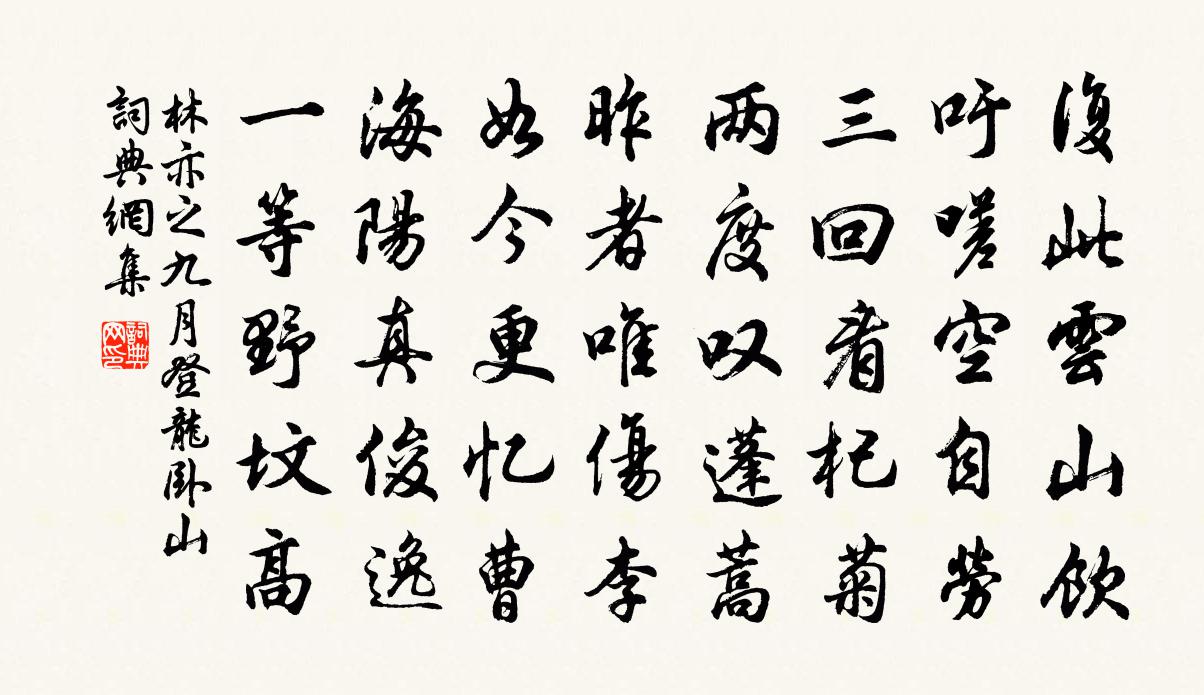 復此雲山飲
吁嗟空自勞
三回看杞菊
两度叹蓬蒿
昨者唯傷李
如今更忆曹
海陽真俊逸
一等野坟高
林亦之九月登龍臥山
詞典網集
詞典网印